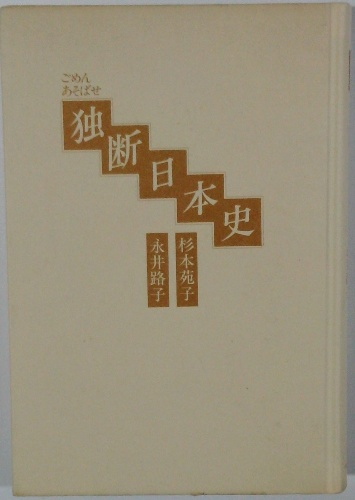 ごめん
あそばせ
独断日本史
杉本苑子
永井路子